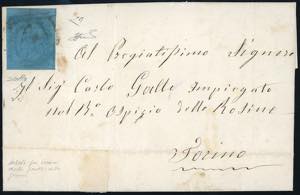 Al Pregiatissimo Signore
Il Sig. Carlo Gallo Impiegato
nel R.o Ospizio delle Rosine
Torino